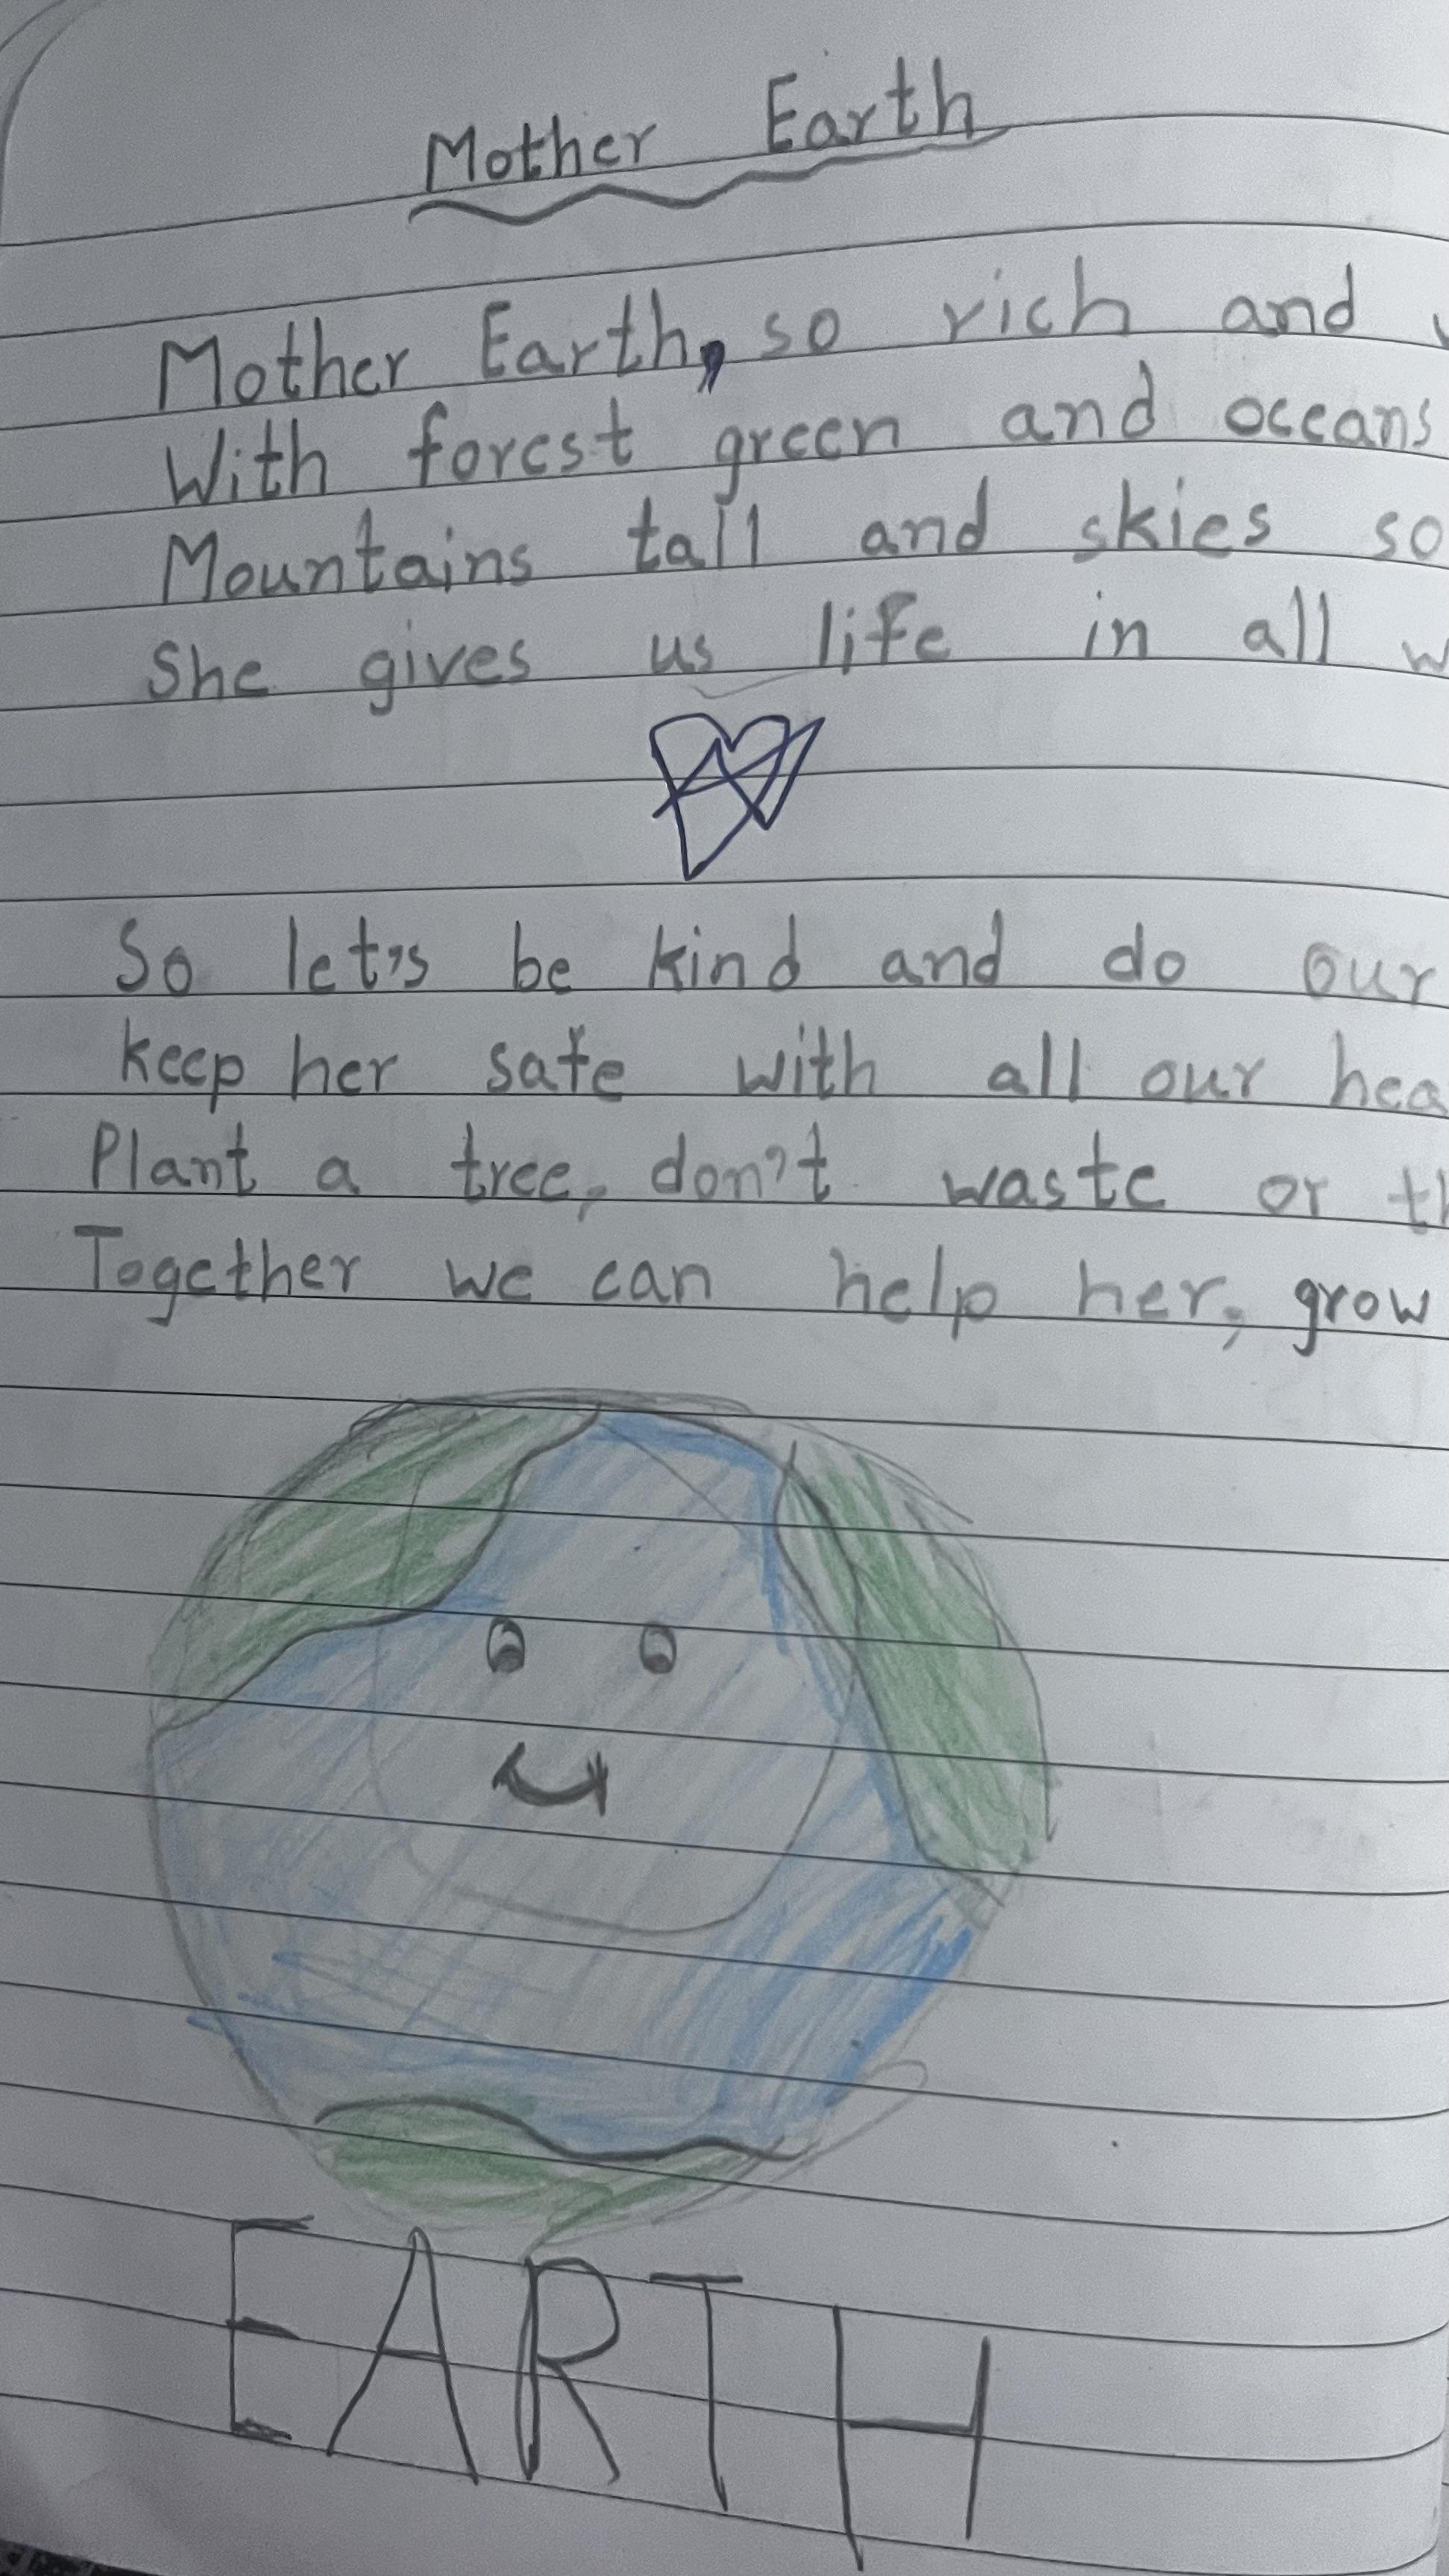 Mother Earth
Mother Earth, so rich and
With forest green and oceans
Mountains tall and skies so
She gives us life in all
So let's be kind and do our
keep her safe with all our
Plant a tree, don't waste or
Together we can help her, grow
EARTH